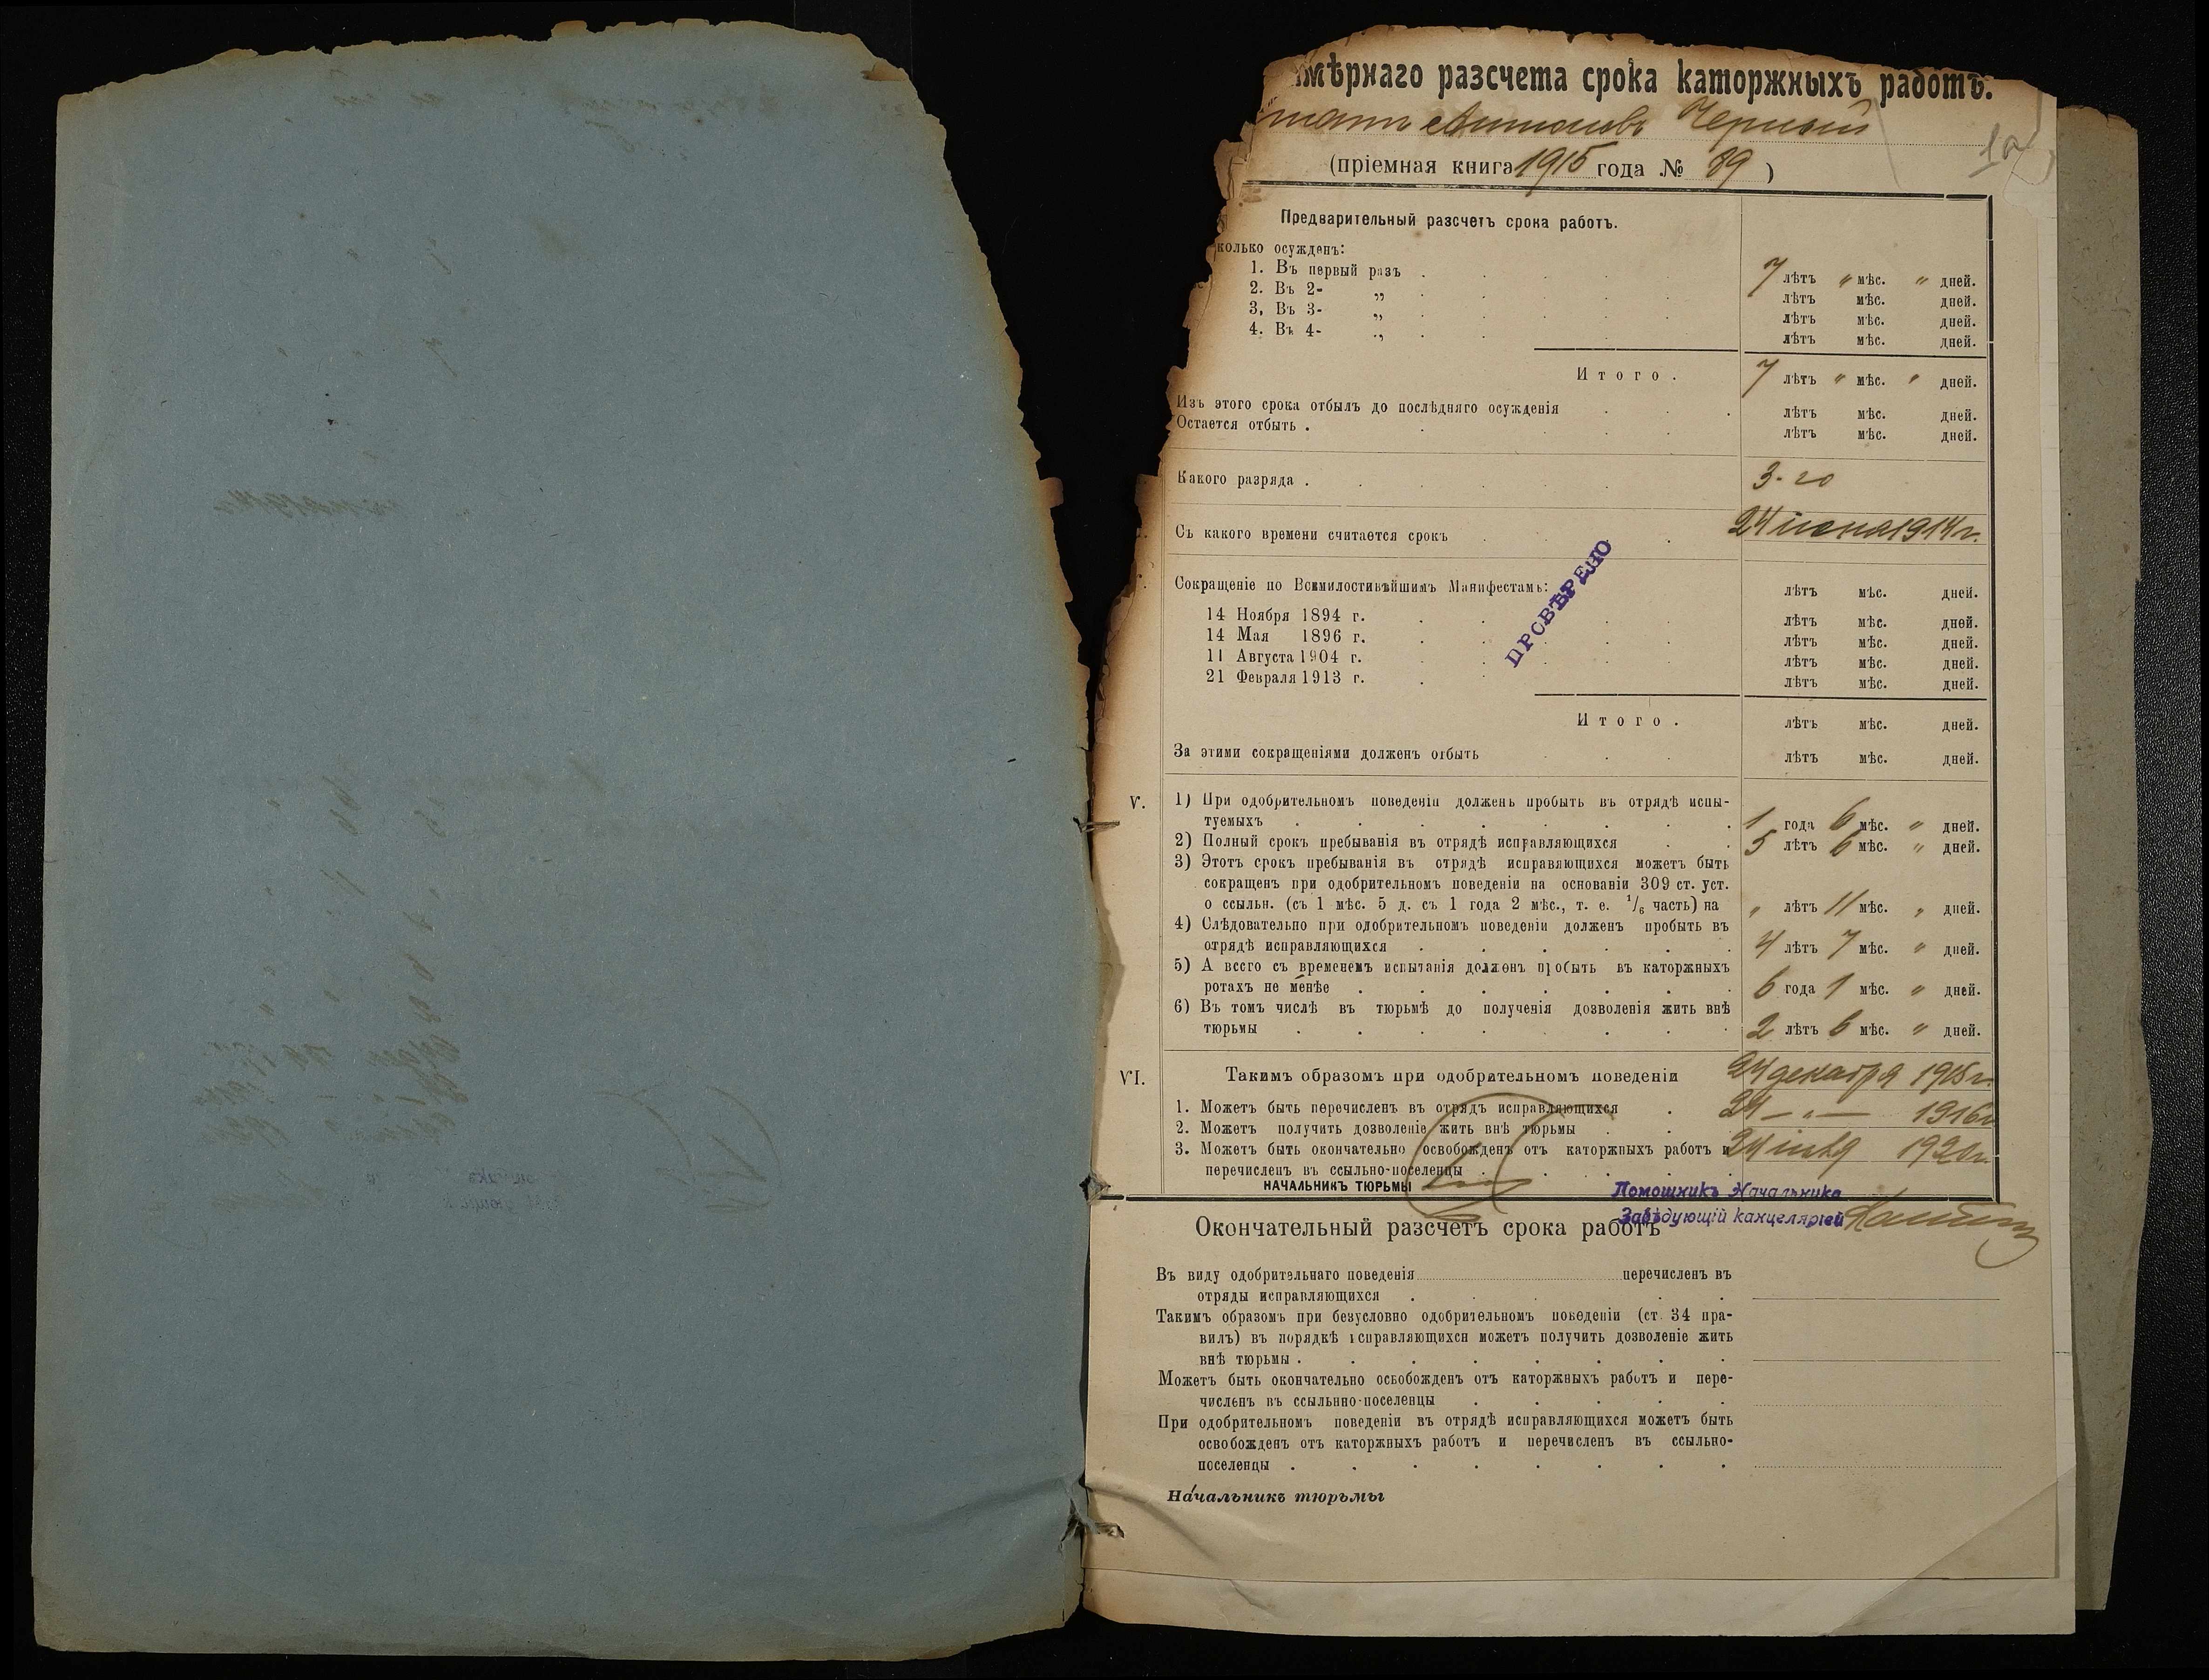 мѣрнаго разсчета срока каторжныхъ работъ.
Антоновъ Черный
1а
(пріемная книга 1915 года № 89 )
Предварительный разсчетъ срока работъ.
колько осужденъ:
1. Въ первый разъ . 7 лѣтъ " мѣс. " дней.
2. Въ 2- „ лѣтъ мѣс. дней.
3, Въ 3- „ лѣтъ мѣс. дней.
4. Въ 4- „ лѣтъ мѣс. дней.
Итого. 7 лѣтъ " мѣс. " дней.
Изъ этого срока отбылъ до послѣдняго осужденія . лѣтъ мѣс. дней.
Остается отбыть . лѣтъ мѣс. дней.
Какого разряда . 3-го
Съ какого времени считается срокъ . 24 1914 г.
Сокращеніе по Всемилостивѣйшимъ Манифестамъ: лѣтъ мѣс. дней.
14 Ноября 1894 г. лѣтъ мѣс. дней.
14 Мая 1896 г. лѣтъ мѣс. дней.
11 Августа 1904 г. лѣтъ мѣс. дней.
21 Февраля 1913 г. лѣтъ мѣс. дней.
ПРОВѢРЕНО
Итого. лѣтъ мѣс. дней.
За этими сокращеніями долженъ отбыть лѣтъ мѣс. дней.
V. 1) При одобрительномъ поведеніи долженъ пробыть въ отрядѣ испы-
туемыхъ . 1 года 6 мѣс. " дней.
2) Полный срокъ пребыванія въ отрядѣ исправляющихся . 5 лѣтъ 6 мѣс. " дней.
3) Этотъ срокъ пребыванія въ отрядѣ исправяющихся можетъ быть
сокращенъ при одобрительномъ поведеніи на основаніи 309 ст. уст.
о ссыльн. (съ 1 мѣс. 5 д. съ 1 года 2 мѣс., т. е. 1/6 часть) на " лѣтъ 11 мѣс. " дней.
4) Слѣдовательно при одобрительномъ поведеніи долженъ пробыть въ
отрядѣ исправляющихся . 4 лѣтъ 7 мѣс. " дней.
5) А всего съ временемъ испытанія долженъ пробыть въ каторжныхъ
ротахъ не менѣе . 6 года 1 мѣс. " дней.
6) Въ томъ числѣ въ тюрьмѣ до полученія дозволенія жить внѣ
тюрьмы . 2 лѣтъ 6 мѣс. " дней.
VI. Такимъ образомъ при одобрительномъ поведеніи
1. Можетъ быть перечисленъ въ отрядъ исправляющихся . 24 декабря 1915 г.
2. Можетъ получить дозволеніе жить внѣ тюрьмы . 24 — " — 1916 г
3. Можетъ быть окончательно освобожденъ отъ каторжныхъ работъ и 24 1920 г.
перечисленъ въ ссыльно-поселенцы .
НАЧАЛЬНИКЪ ТЮРЬМЫ
Помощникъ Начальника
Завѣдующій канцеляріей
Окончательный разсчетъ срока работъ
Въ виду одобрительнаго поведенія перечисленъ въ
отряды исправляющихся .
Такимъ образомъ при безусловно одобрительномъ поведеніи (ст. 34 пра-
вилъ) въ порядкѣ исправляющихся можетъ получить дозволеніе жить
внѣ тюрьмы .
Можетъ быть окончательно освобожденъ отъ каторжныхъ работъ и пере-
численъ въ ссыльнно-поселенцы .
При одобрительномъ поведеніи въ отрядѣ исправляющихся можетъ быть
освобожденъ отъ каторжныхъ работъ и перечисленъ въ ссыльно-
поселенцы .
Начальникъ тюрьмы